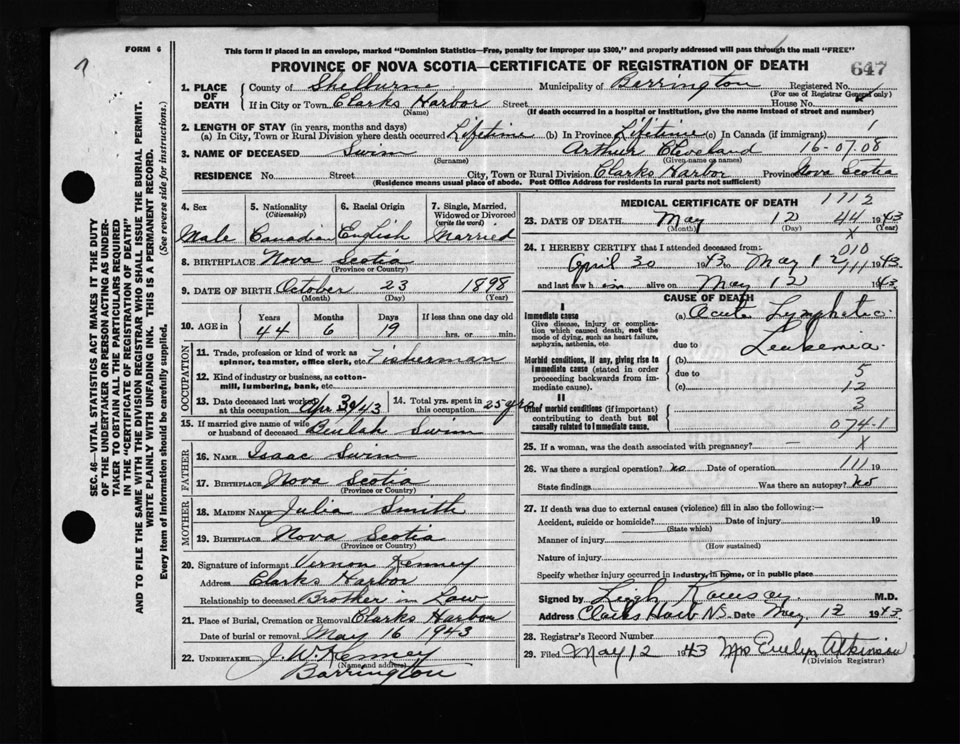 FORM 6
7
This form if placed in an envelope, marked "Dominion Statistics—Free, penalty for improper use $300," and properly addressed will pass through the mail "FREE"
PROVINCE OF NOVA SCOTIA—CERTIFICATE OF REGISTRATION OF DEATH
647
SEC. 46—VITAL STATISTICS ACT MAKES IT THE DUTY
OF THE UNDERTAKER OR PERSON ACTING AS UNDER-
TAKER TO OBTAIN ALL THE PARTICULARS REQUIRED
IN THE "CERTIFICATE OF REGISTRATION OF DEATH"
AND TO FILE THE SAME WITH THE DIVISION REGISTRAR WHO SHALL ISSUE THE BURIAL PERMIT.
WRITE PLAINLY WITH UNFADING INK. THIS IS A PERMANENT RECORD.
Every item of Information should be carefully supplied. (See reverse side for instructions.)
1. PLACE OF DEATH County of Shelburne Municipality of Barrington Registered No.
(For use of Registrar General only)
If in City or Town Clarks Harbor Street House No.
(Name) (If death occurred in a hospital or institution, give the name instead of street and number)
2. LENGTH OF STAY (in years, months and days)
(a) In City, Town or Rural Division where death occurred Lifetime (b) In Province Lifetime (c) In Canada (if immigrant) 1
3. NAME OF DECEASED Swim Arthur Cleveland 16-07.08
(Surname) (Given name or names)
RESIDENCE No. Street City, Town or Rural Division Clarks Harbor Province Nova Scotia
(Residence means usual place of abode. Post Office Address for residents in rural parts not sufficient)
4. Sex 5. Nationality (Citizenship) 6. Racial Origin 7. Single, Married, Widowed or Divorced (write the word)
Male Canadian English Married
8. BIRTHPLACE Nova Scotia
(Province or Country)
9. DATE OF BIRTH October 23 1898
(Month) (Day) (Year)
10. AGE in Years Months Days If less than one day old
44 6 19 hrs. or min.
OCCUPATION
11. Trade, profession or kind of work as spinner, teamster, office clerk, etc. Fisherman
12. Kind of industry or business, as cotton-mill, lumbering, bank, etc.
13. Date deceased last worked at this occupation Apr 30 1943 14. Total yrs. spent in this occupation 25 yrs
15. If married give name of wife or husband of deceased Beulah Swim
FATHER
16. NAME Isaac Swim
17. BIRTHPLACE Nova Scotia
(Province or Country)
MOTHER
18. MAIDEN NAME Julia Smith
19. BIRTHPLACE Nova Scotia
(Province or Country)
20. Signature of informant Vernon Kenney
Address Clarks Harbor
Relationship to deceased Brother in Law
21. Place of Burial, Cremation or Removal Clarks Harbor
Date of burial or removal May 16 1943
22. UNDERTAKER J. W. Kenney
(Name and address)
Barrington
MEDICAL CERTIFICATE OF DEATH 1712
23. DATE OF DEATH May 12 44 1943
(Month) (Day) (Year)
X
24. I HEREBY CERTIFY that I attended deceased from:— 010
April 30 1943 to May 12 111 1943.
and last saw him alive on May 12 1943.
CAUSE OF DEATH
I
Immediate cause (a) Acute Lymphatic
Give disease, injury or complication which caused death, not the mode of dying, such as heart failure, asphyxia, asthenia, etc.
due to Leukemia.
Morbid conditions, if any, giving rise to immediate cause (stated in order proceeding backwards from immediate cause).
(b)
due to 5
(c) 12
II
Other morbid conditions (if important) contributing to death but not causally related to immediate cause.
3
074-1
25. If a woman, was the death associated with pregnancy? — X
26. Was there a surgical operation? no Date of operation 111 19
State findings Was there an autopsy? No
27. If death was due to external causes (violence) fill in also the following:—
Accident, suicide or homicide? Date of injury 19
(State which)
Manner of injury
(How sustained)
Nature of injury
Specify whether injury occurred in industry, in home, or in public place
Signed by Leigh Ramsay M.D.
Address Clarks Harb NS. Date May 12 1943.
28. Registrar's Record Number
29. Filed May 12 1943 Mrs Evelyn Atkinson
(Division Registrar)